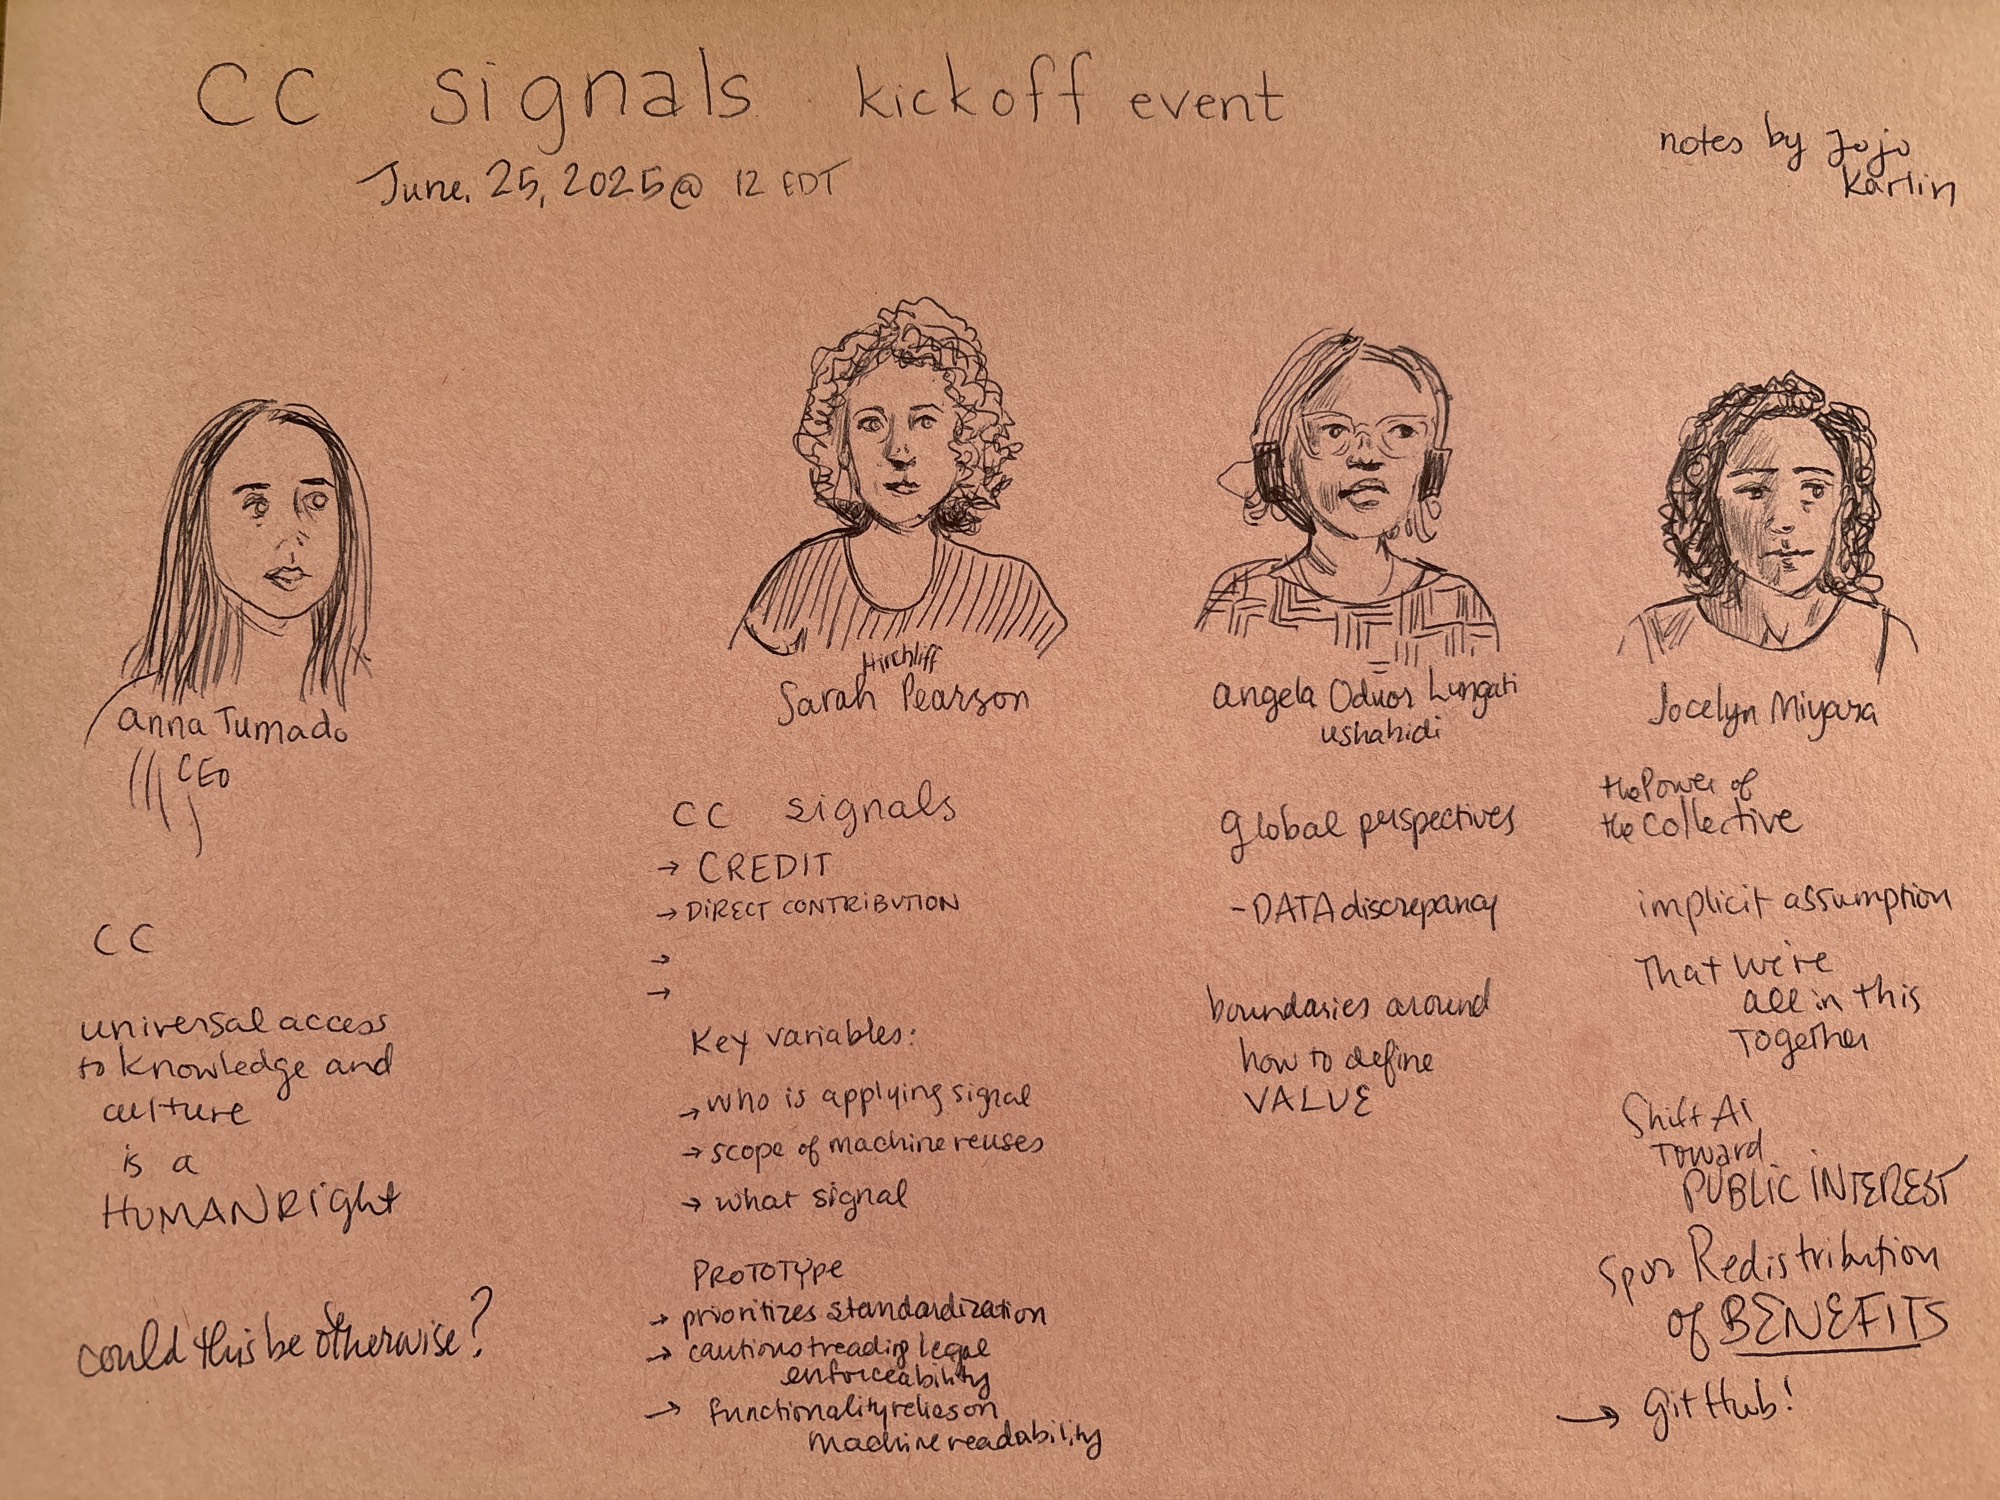 CC signals kickoff event
June. 25, 2025 @ 12 EDT
notes by Jojo
Karlin
Anna Tumado
CEO
CC
universal access
to knowledge and
culture
is a
HUMAN RIGHT
could this be otherwise?
Hinchliff
Sarah Pearson
CC signals
→ CREDIT
→ DIRECT CONTRIBUTION
→
→
Key variables:
→ who is applying signal
→ scope of machine reuses
→ what signal
PROTOTYPE
→ prioritizes standardization
→ cautious treading legal
enforceability
→ functionality relies on
machine readability
Angela Oduor Lungati
ushahidi
Global perspectives
- DATA discrepancy
boundaries around
how to define
VALUE
Jocelyn Miyara
the Power of
the Collective
implicit assumption
That we're
all in this
Together
Shift AI
Toward
PUBLIC INTEREST
Spur Redistribution
of BENEFITS
→ GitHub!